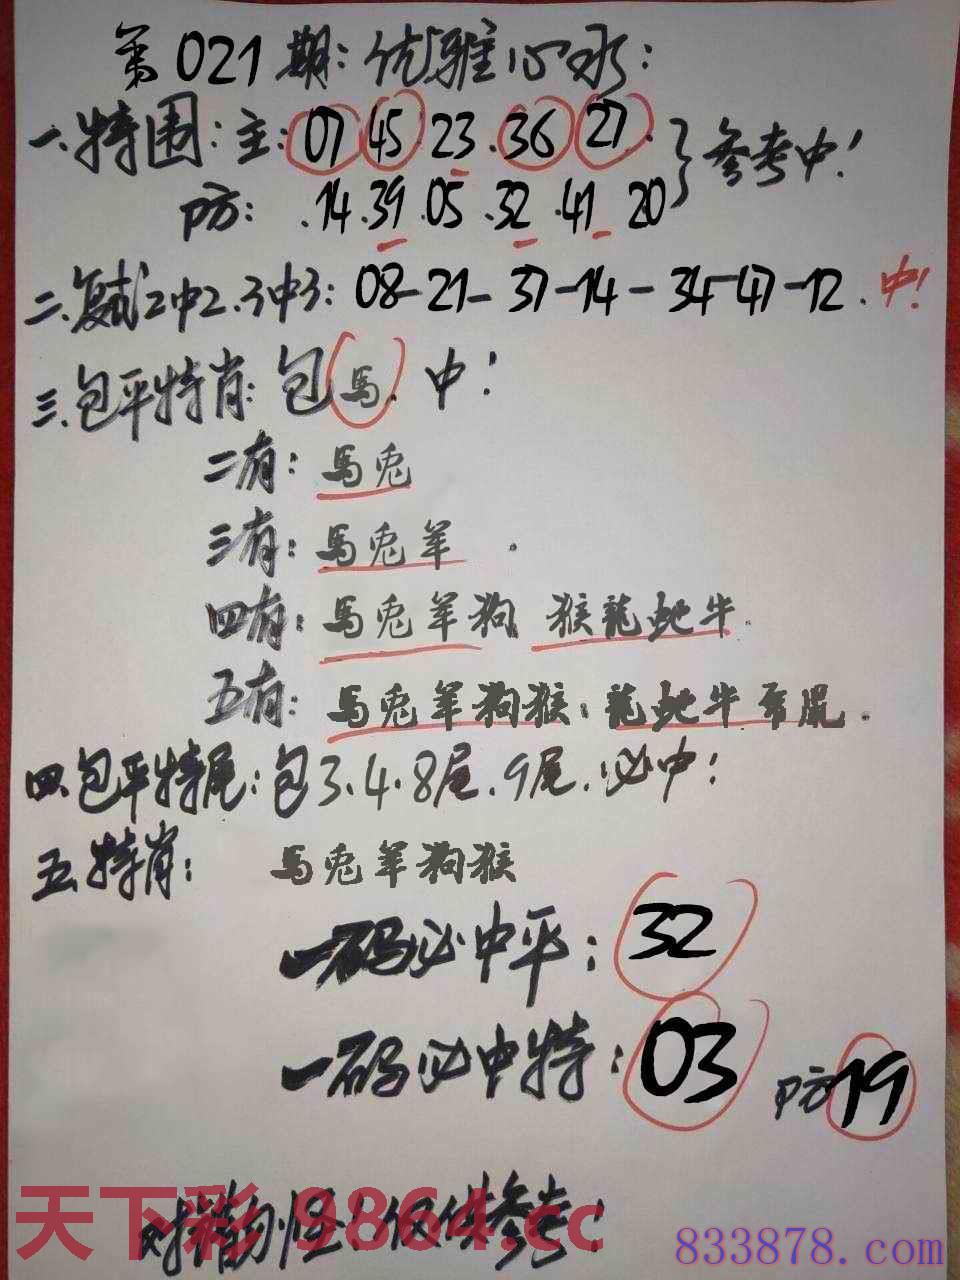 第021期：优雅心水：
一.特围：主：07 45 23.36 27. }参考中！
防：.14.39.05.32.41 20
二.复式2中2.3中3：08-21-37-14-34-47-12.中！
三.包平特肖：包馬.中！
二有：馬兎
三有：馬兎羊.
四有：馬兎羊狗 猴龍蛇牛.
五有：馬兎羊狗猴：龍蛇牛鼠.
四.包平特尾：包3.4.8尾.9尾.必中！
五.特肖：馬兎羊狗猴
一码必中平：32
一码必中特：03 防19
对 怪！仅供参考！
天下彩 9864.cc
833878.com